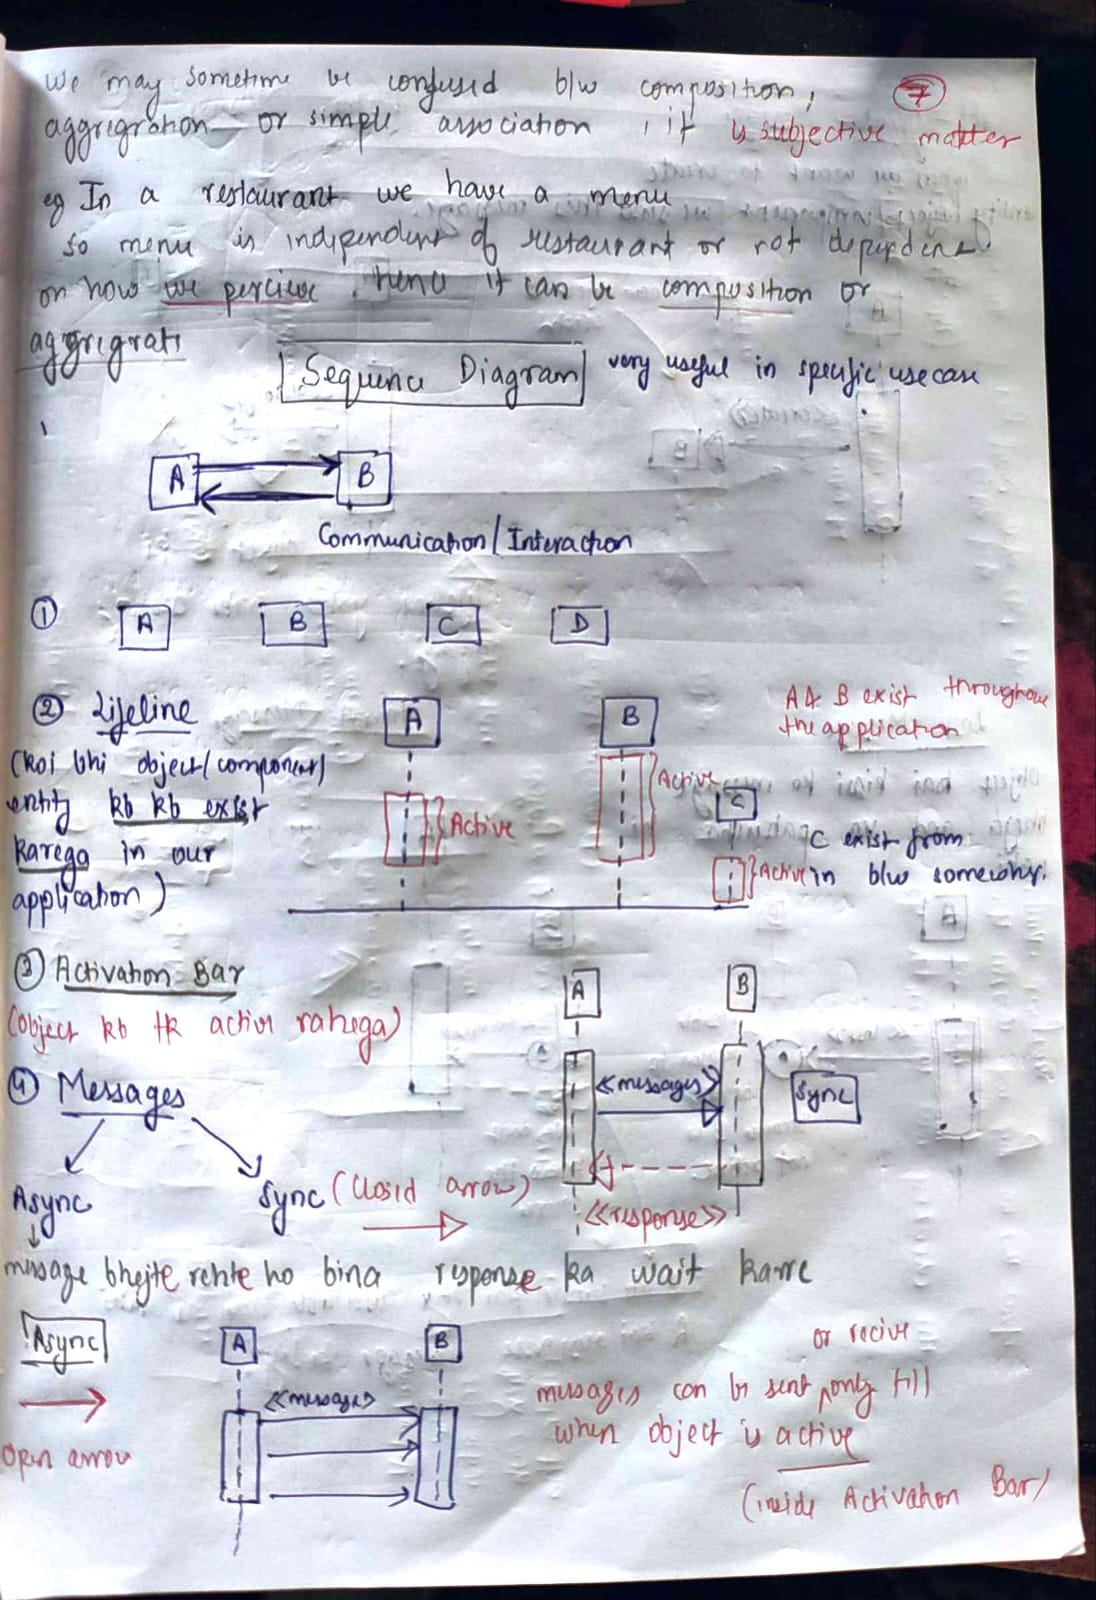 We may sometime be confused b/w composition,
7
aggrigration or simple association , it is subjective matter
eg In a restaurant we have a menu
so menu is independent of restaurant or not dependend
on how we percieve . hence it can be composition or
aggrigrati
Sequence Diagram very useful in specific usecase
A B
Communication/Interaction
① A B C D
② Lifeline A B
A & B exist throughout
the application
(koi bhi object/component/
entity kb kb exist
karega in our
application)
Active Active C
C exist from
Active in b/w somewhere.
③ Activation Bar
(object kb tk active rahega)
A B
④ Messages
<<messages>> Sync
Async Sync (Closed arrow)
<<response>>
message bhejte rehte ho bina response ka wait karre
Async A B
<<messages>>
open arrow
or recive
messages can be sent only till
when object is active
(inside Activation Bar)